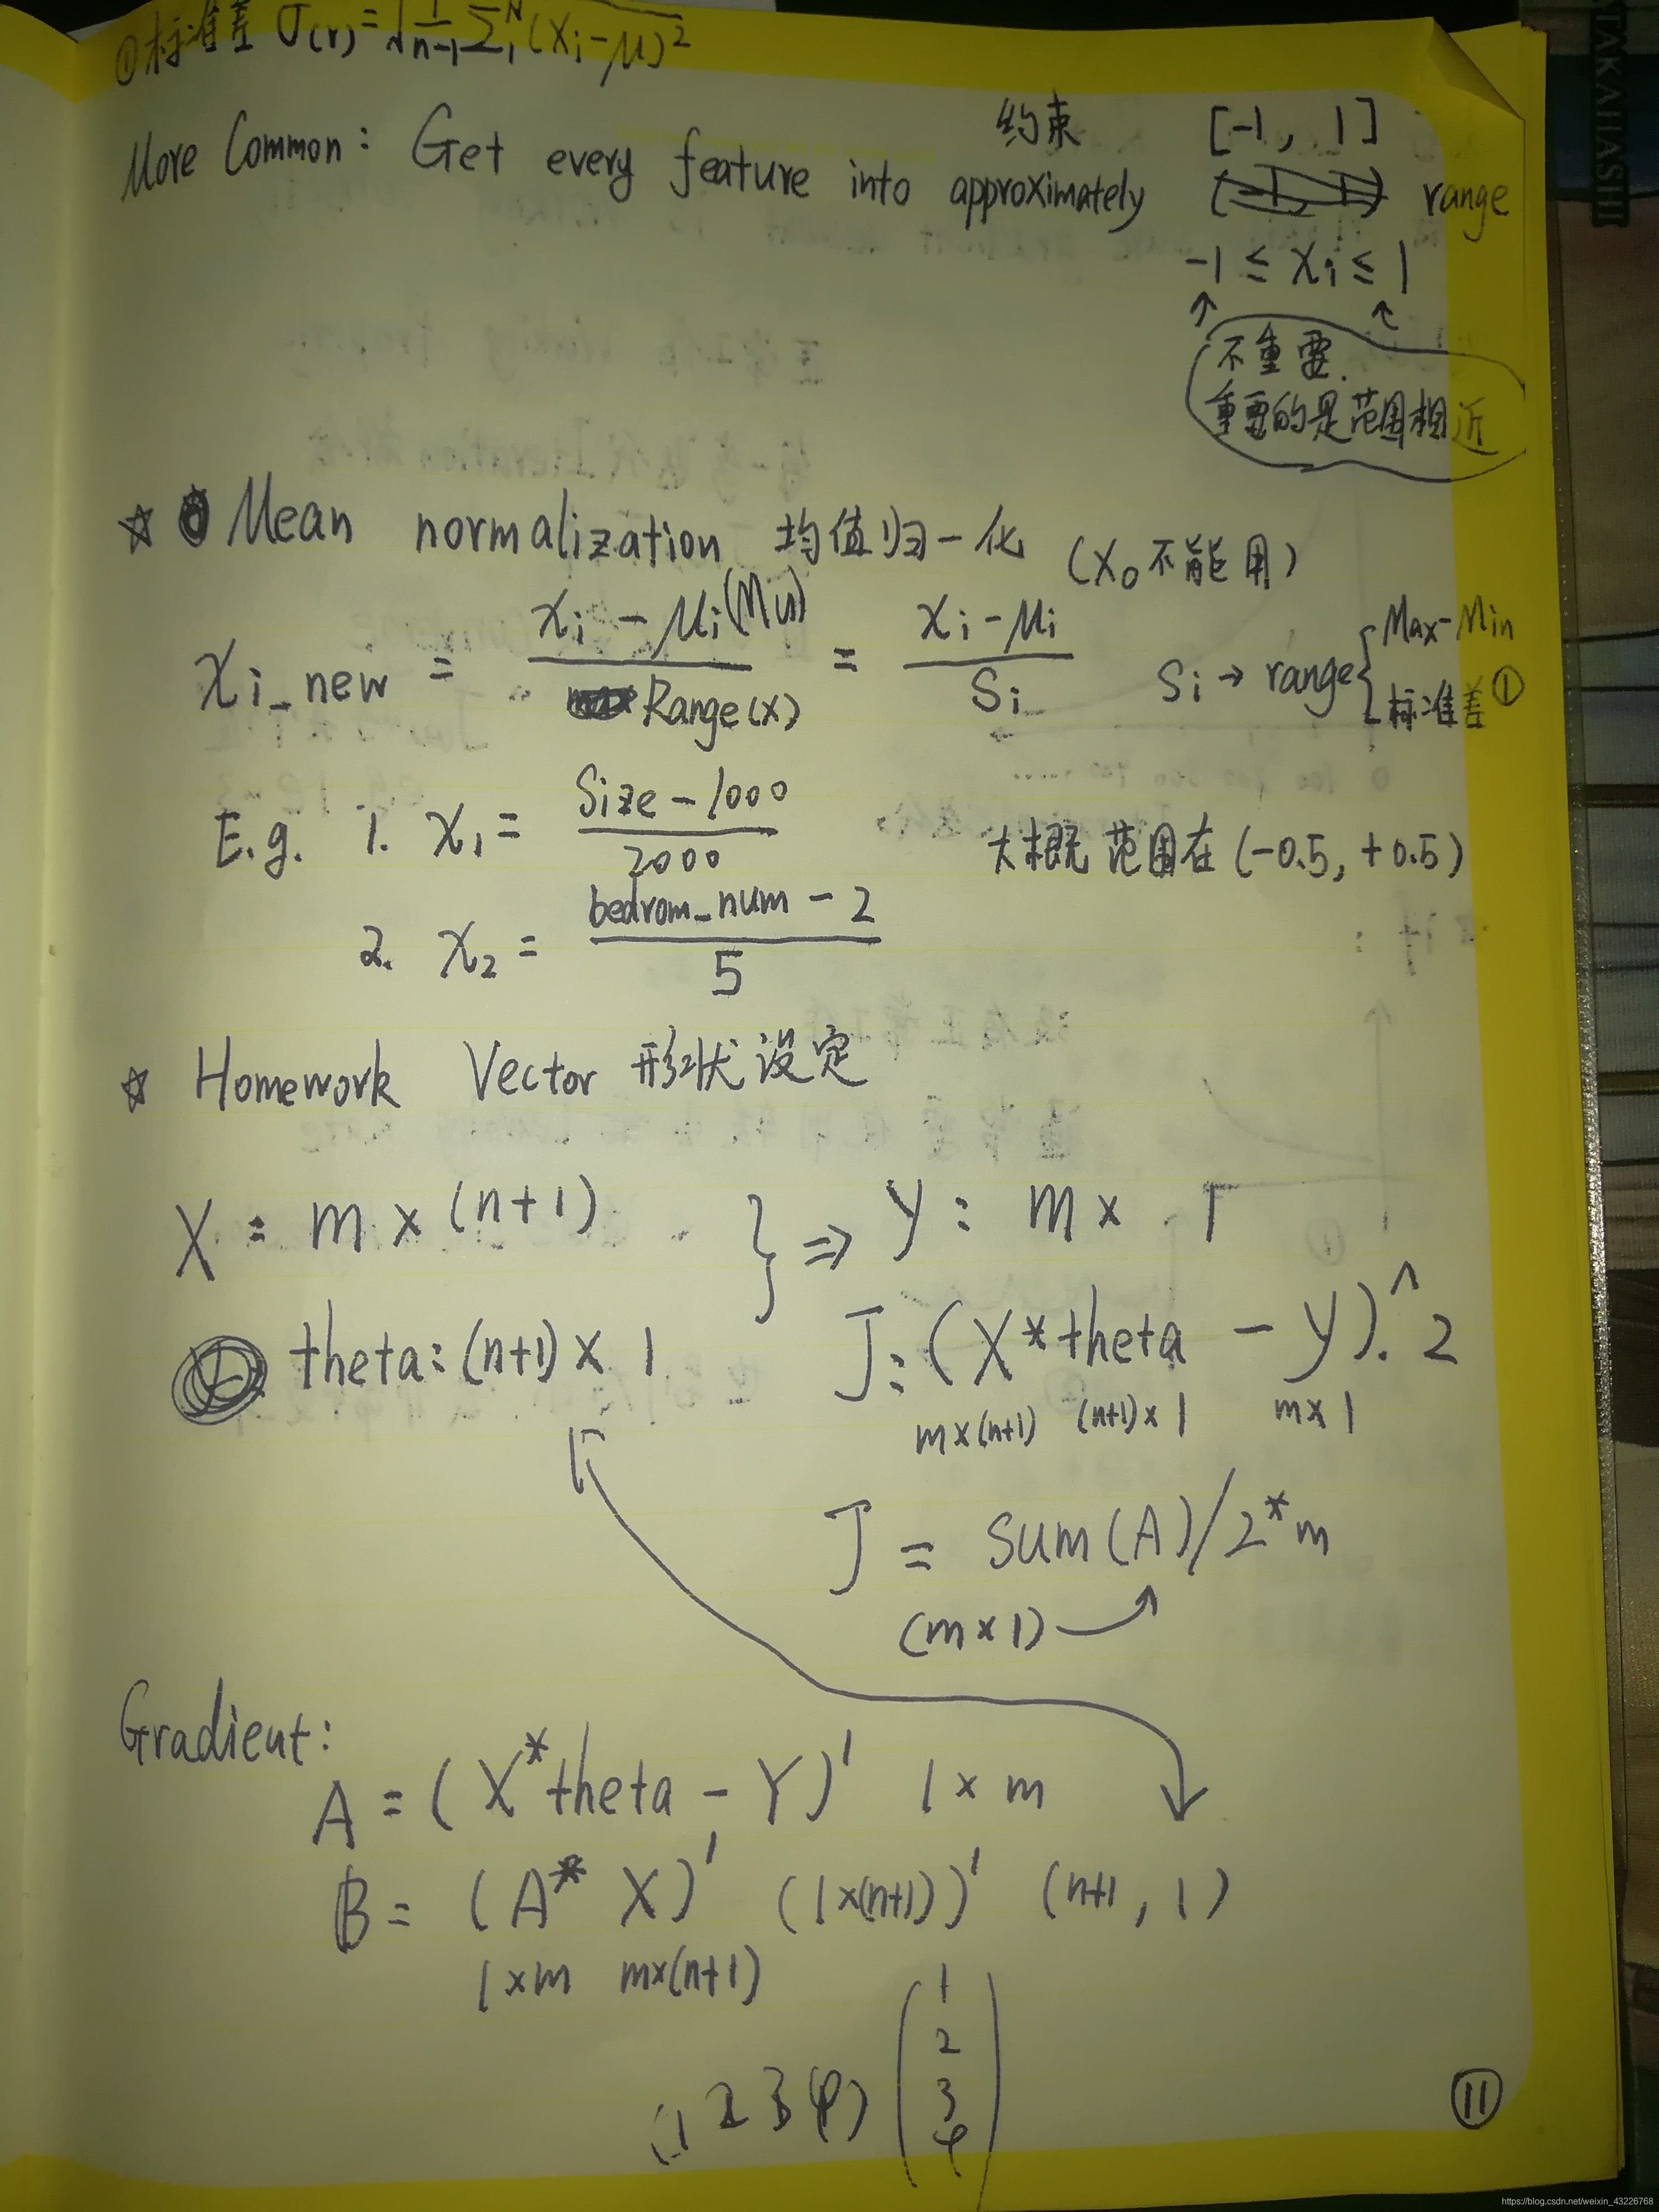 ①标准差 σ(r)=√(1/(n-1) Σ₁ᴺ(xi-μ)²)
约束 [-1, 1]
More Common: Get every feature into approximately range
-1 ≤ xi ≤ 1
不重要.
重要的是范围相近
☆ Mean normalization 均值归一化 (x₀不能用)
xi_new = (xi - μi(Mu)) / Range(x) = (xi - μi) / Si Si → range { Max-Min
标准差①
E.g. 1. x₁ = (Size - 1000) / 2000 大概范围在(-0.5, +0.5)
2. x₂ = (bedrom_num - 2) / 5
☆ Homework Vector 形状设定
X = m x (n+1) } ⇒ y: m x 1
theta: (n+1) x 1 J: (X*theta - y).^2
m x (n+1) (n+1) x 1 m x 1
J = sum(A)/2*m
(m x 1)
Gradient:
A = (X*theta - Y)' 1 x m
B = (A* X)' (1x(n+1))' (n+1, 1)
1 x m m x (n+1)
(1 2 3 4) (1
2
3
4)
⑪
TAKAHASHI
https://blog.csdn.net/weixin_43226768